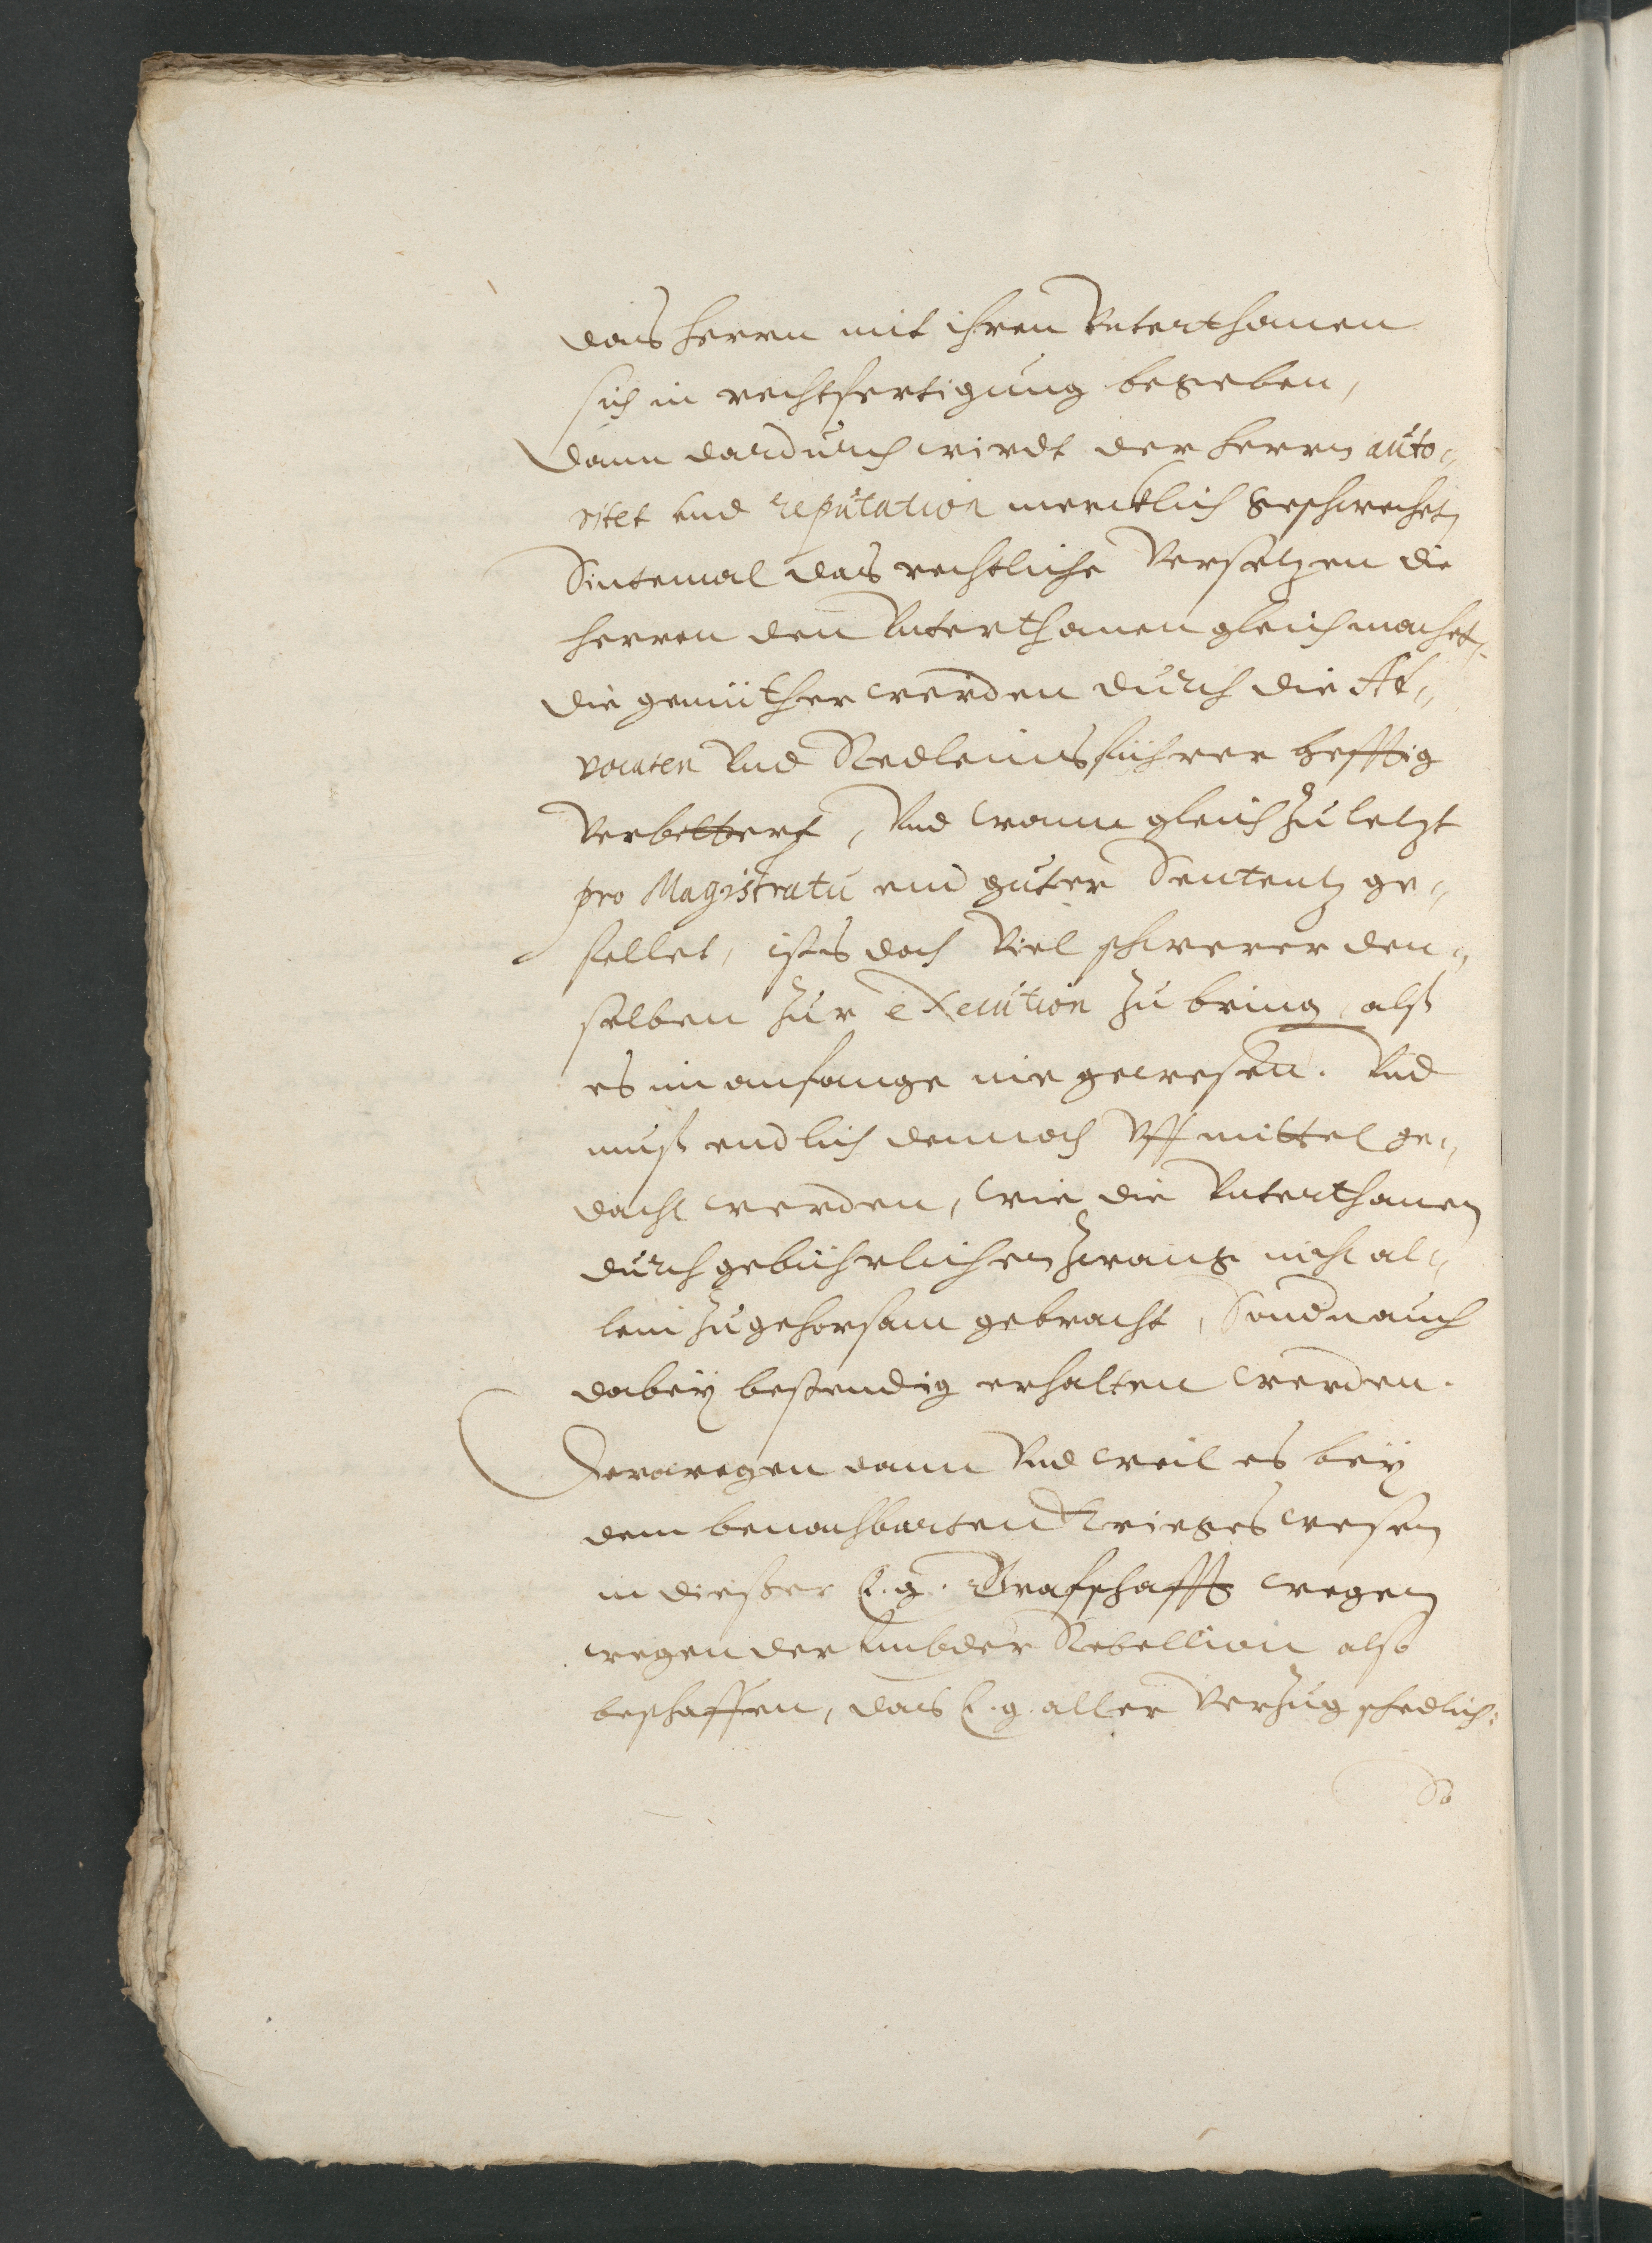 das herrn mit ihren Vnterthanen
sich in rechtfertigung begeben,
dann dardurch wirdt der herrn auto„
ritet und reputation mercklich geschwechet,
Sintemal das rechtliche Versetzen die
herren den Vnterthanen gleich machet,
die gemüther werden durch die Ad„
vocaten Vnd Redleinsführer hefftig
Verbittert, Vnd wann gleich zu letzt
pro Magistratu eine guter Sententz ge„
fellet, ists doch Viel schwerer den„
selben zur execution zu bring, alß
es im anfange nie gewesen. Vnd
muß endlich dennoch Vff mittel ge„
dacht werden, wie die Vnterthanen
durch gebührlichen Zwang nicht al„
lein zu gehorsam gebracht, Sondn auch
dabey bestendig erhalten werden.
Derowegen dann Vnd weil es bey
dem benachbarten Krieges wesen
in dießer E. g. Graffschafft wegen
wegen der Rebellion also
beschaffen, das E. g. aller Verzug schedlich.
So